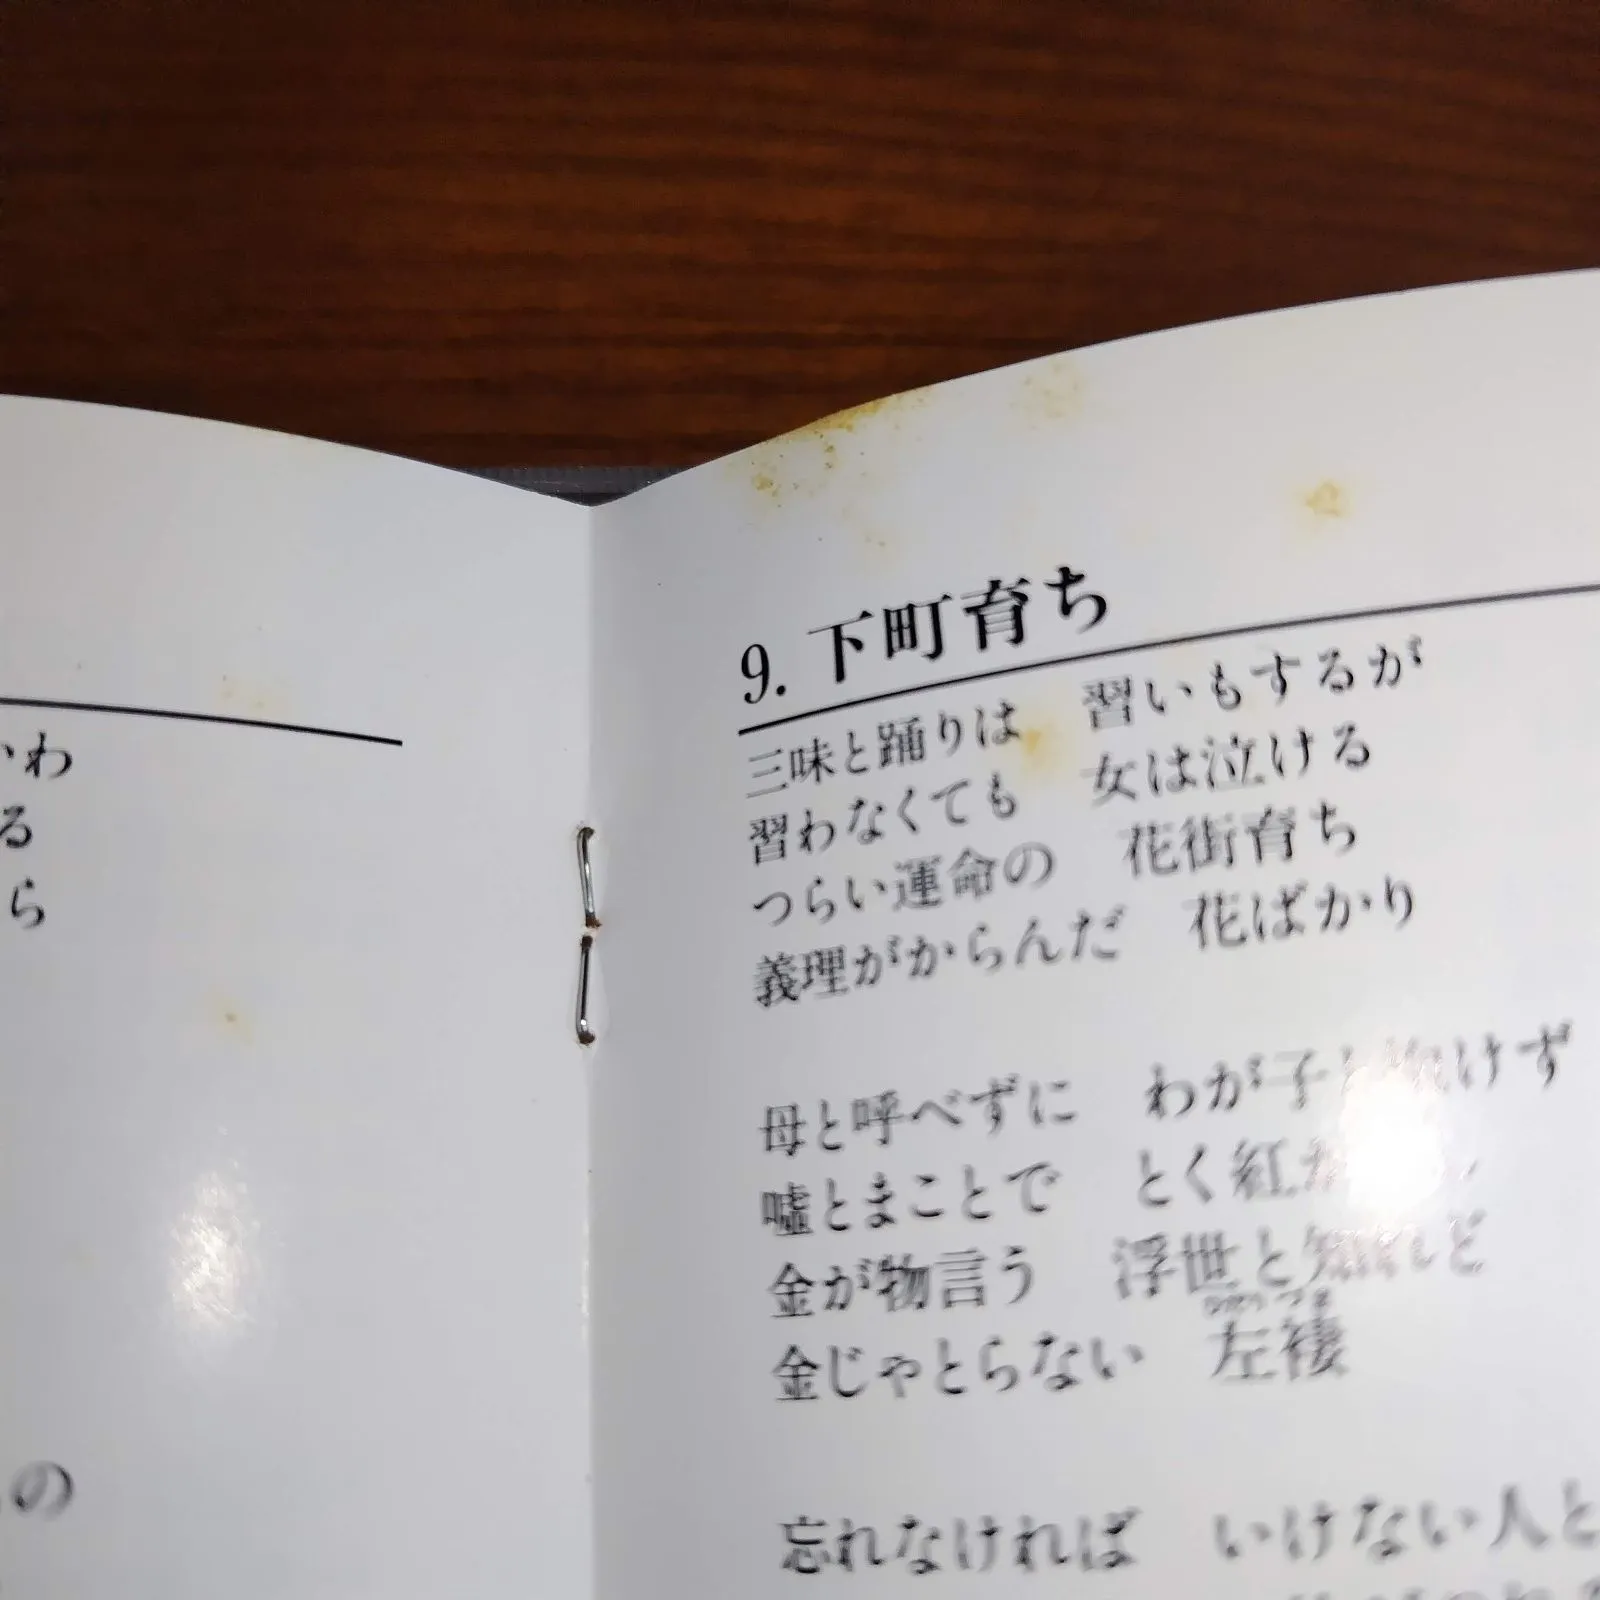 わ
る
ら
の
9. 下町育ち
三味と踊りは　習いもするが
習わなくても　女は泣ける
つらい運命の　花街育ち
義理がからんだ　花ばかり
母と呼べずに　わが子 けず
嘘とまことで　とく紅
金が物言う　浮世と知れど
ひだりづま
金じゃとらない　左褄
忘れなければ　いけない人と